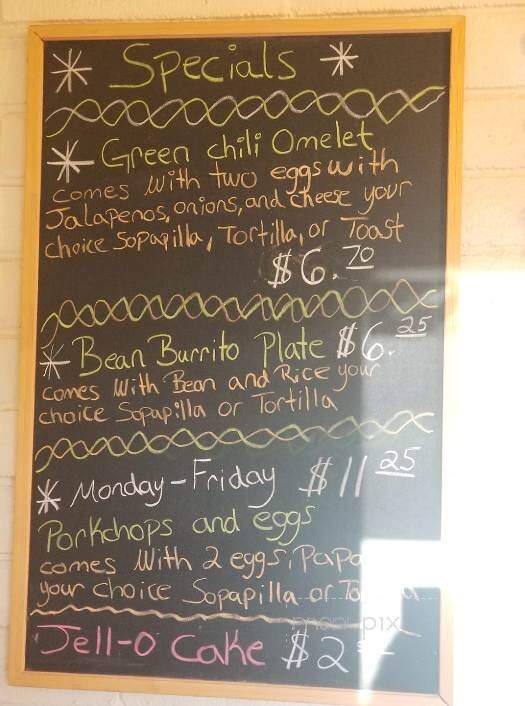 * Specials *
* Green chili Omelet
comes with two eggs with
Jalapenos, onions, and cheese your
choice Sopapilla, Tortilla, or Toast
$6.70
* Bean Burrito Plate $6.25
comes with Bean and Rice your
choice Sopapilla or Tortilla
* Monday-Friday $11 25
Porkchops and eggs
comes with 2 eggs,
your choice Sopapilla or
Jell-O Cake $2